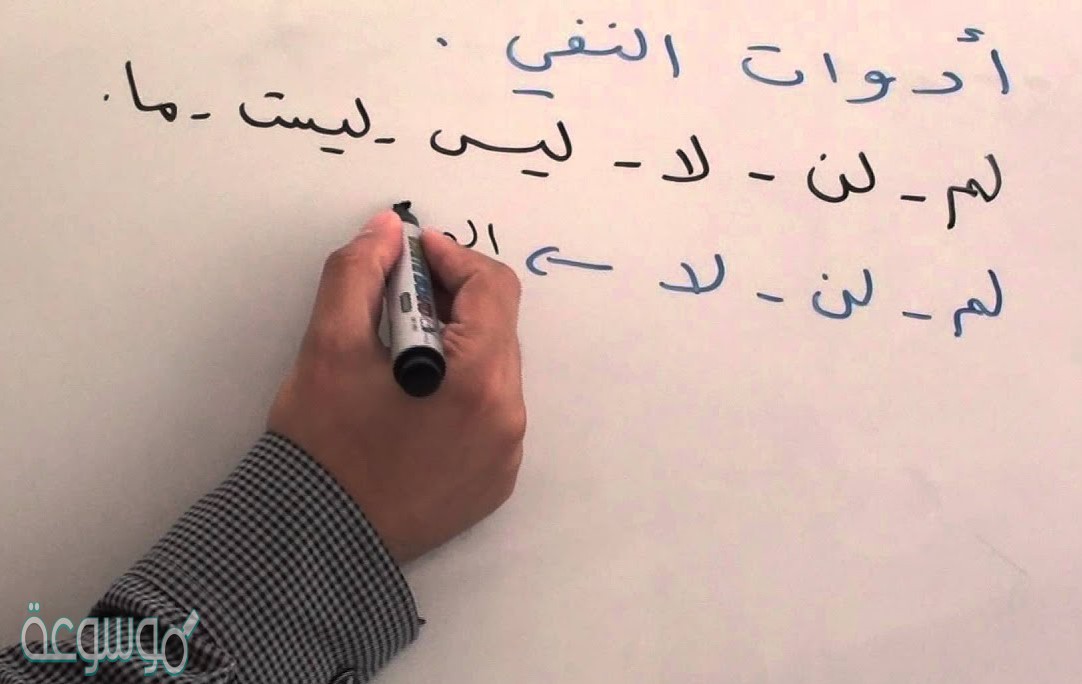 أدوات النفي .
لم - لن - لا - ليس - ليست - ما .
لم - لن - لا ←
موسوعة